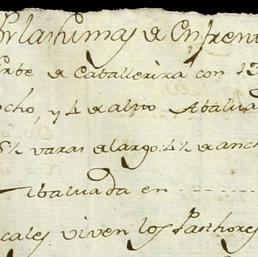 Por las himas de Enfrente
de Caballeriza con 13
ocho, y 4 de alto Abalua
5½ varas de largo 4½ de anch
Abaluada en
cales viven los Pasthores